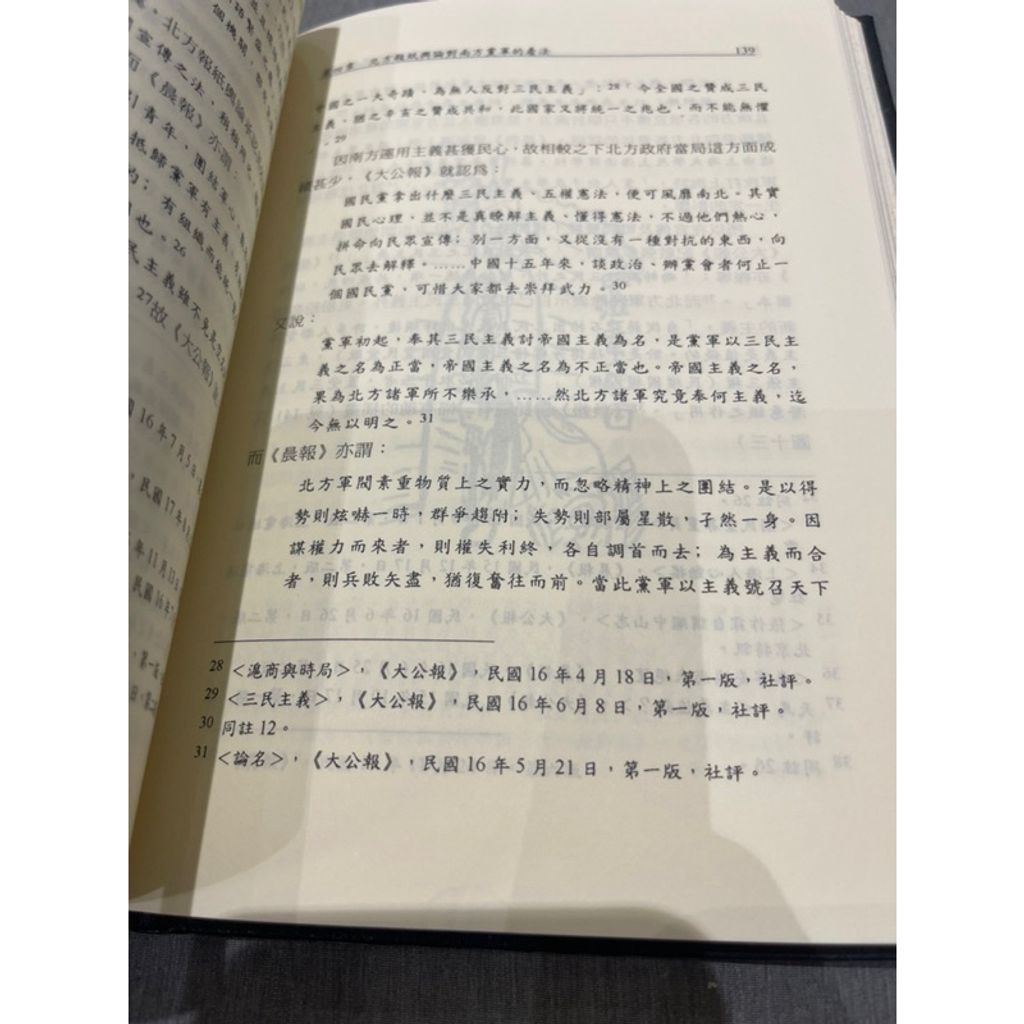 第四章 北方報紙輿論對南方黨軍的看法 139
中國之一大奇蹟,為無人反對三民主義」;28「今全國之贊成三民
主義,猶之辛亥之贊成共和,此國家又將統一之兆也,而不能無懼
。29
因南方運用主義甚獲民心,故相較之下北方政府當局這方面成
績甚少,《大公報》就認為:
國民黨拿出什麼三民主義、五權憲法,便可風靡南北。其實
國民心理,並不是真瞭解主義、懂得憲法,不過他們熱心,
拼命向民眾宣傳;別一方面,又從沒有一種對抗的東西,向
民眾去解釋。……中國十五年來,談政治、辦黨會者何止一
個國民黨,可惜大家都去崇拜武力。30
又說:
黨軍初起,奉其三民主義討帝國主義為名,是黨軍以三民主
義之名為正當,帝國主義之名為不正當也。帝國主義之名,
果為北方諸軍所不樂承,……然北方諸軍究竟奉何主義,迄
今無以明之。31
而《晨報》亦謂:
北方軍閥素重物質上之實力,而忽略精神上之團結。是以得
勢則炫嚇一時,群爭趨附;失勢則部屬星散,孑然一身。因
謀權力而來者,則權失利終,各自調首而去;為主義而合
者,則兵敗矢盡,猶復奮往而前。當此黨軍以主義號召天下
28 <滬商與時局>,《大公報》,民國16年4月18日,第一版,社評。
29 <三民主義>,《大公報》,民國16年6月8日,第一版,社評。
30 同註12。
31 <論名>,《大公報》,民國16年5月21日,第一版,社評。